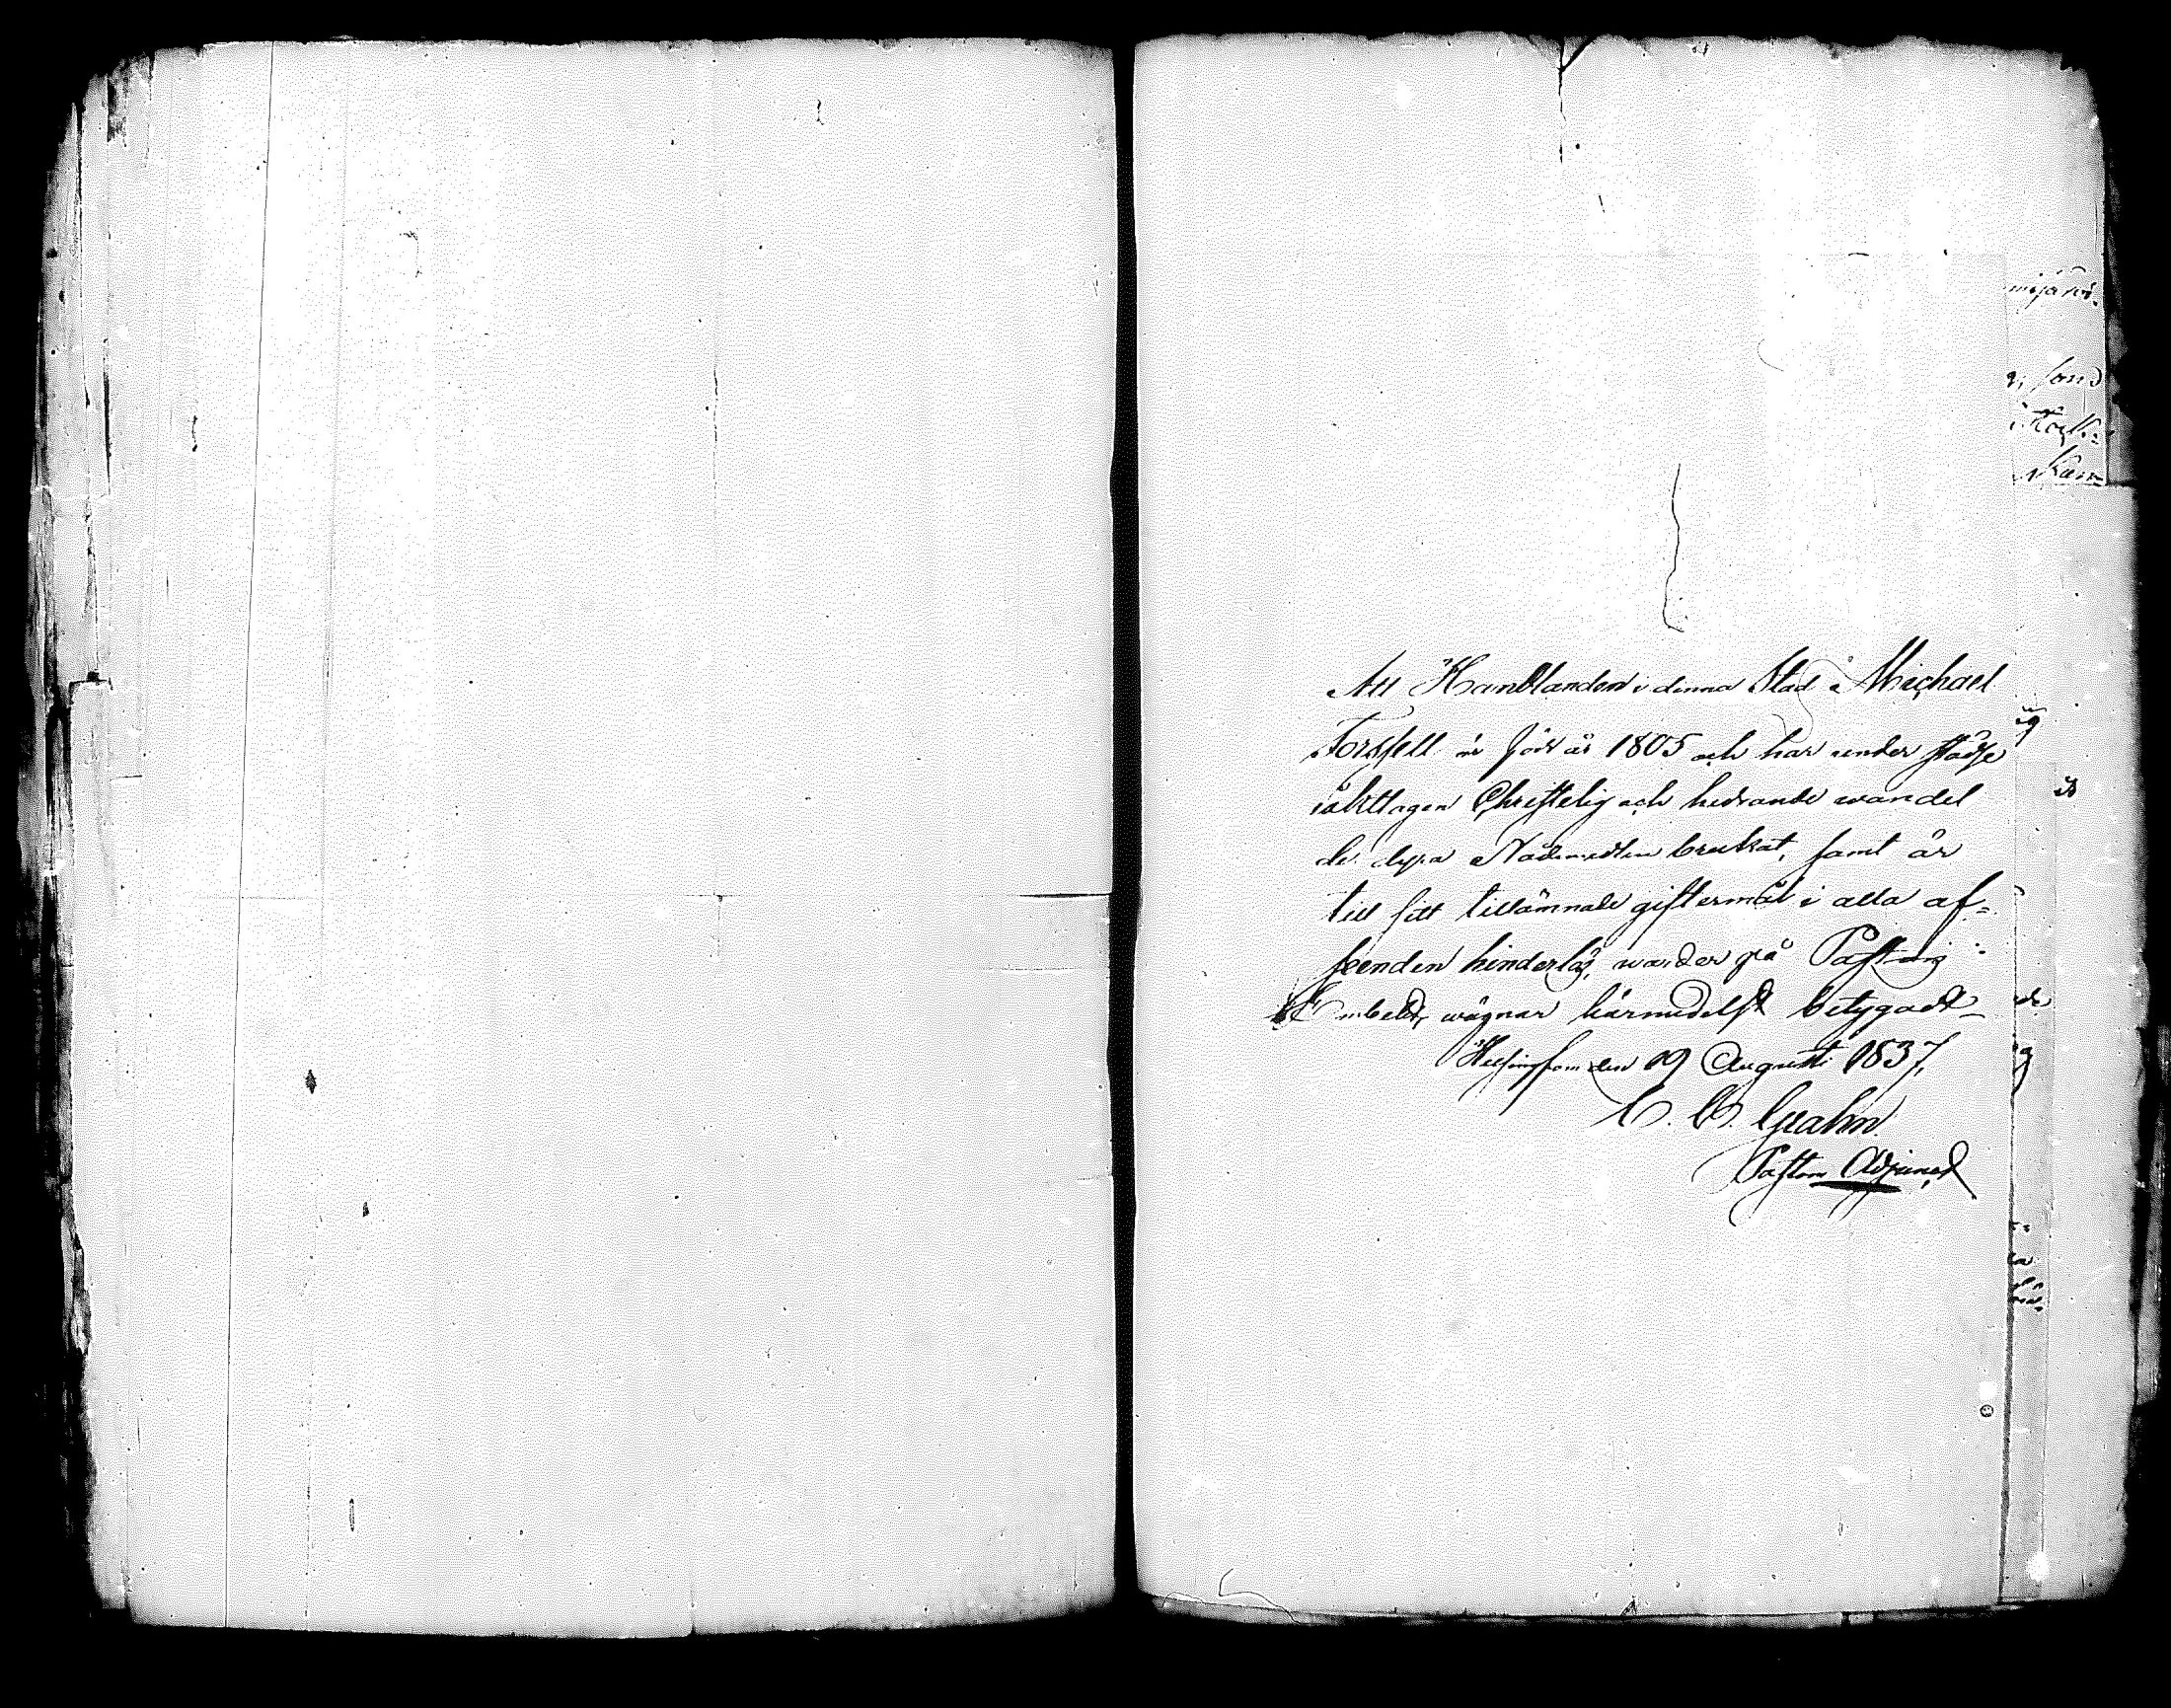 Att Handlanden i denna Stad Michael
Forssell är född år 1805 och har under städse
iakttagen Christelig och hedrande wandel
de dyra Nådemedlen brukat, samt är
till sitt tillämnade giftermål i alla af=
seenden hinderlös, warder på Pastors
Embets wägnar härmedelst betygadt_
Helsingfors den 19 Augusti 1837,
C. C. Grahn.
Pastors Adjunct
som
ig